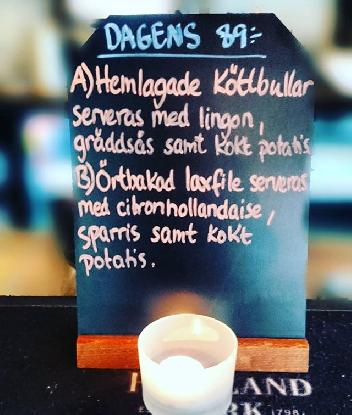 DAGENS 89:-
A) Hemlagade Köttbullar
serveras med lingon,
gräddsås samt kokt potatis
B) Örtbakad laxfile serveras
med citronhollandaise,
sparris samt kokt
potatis.
LAND
1798